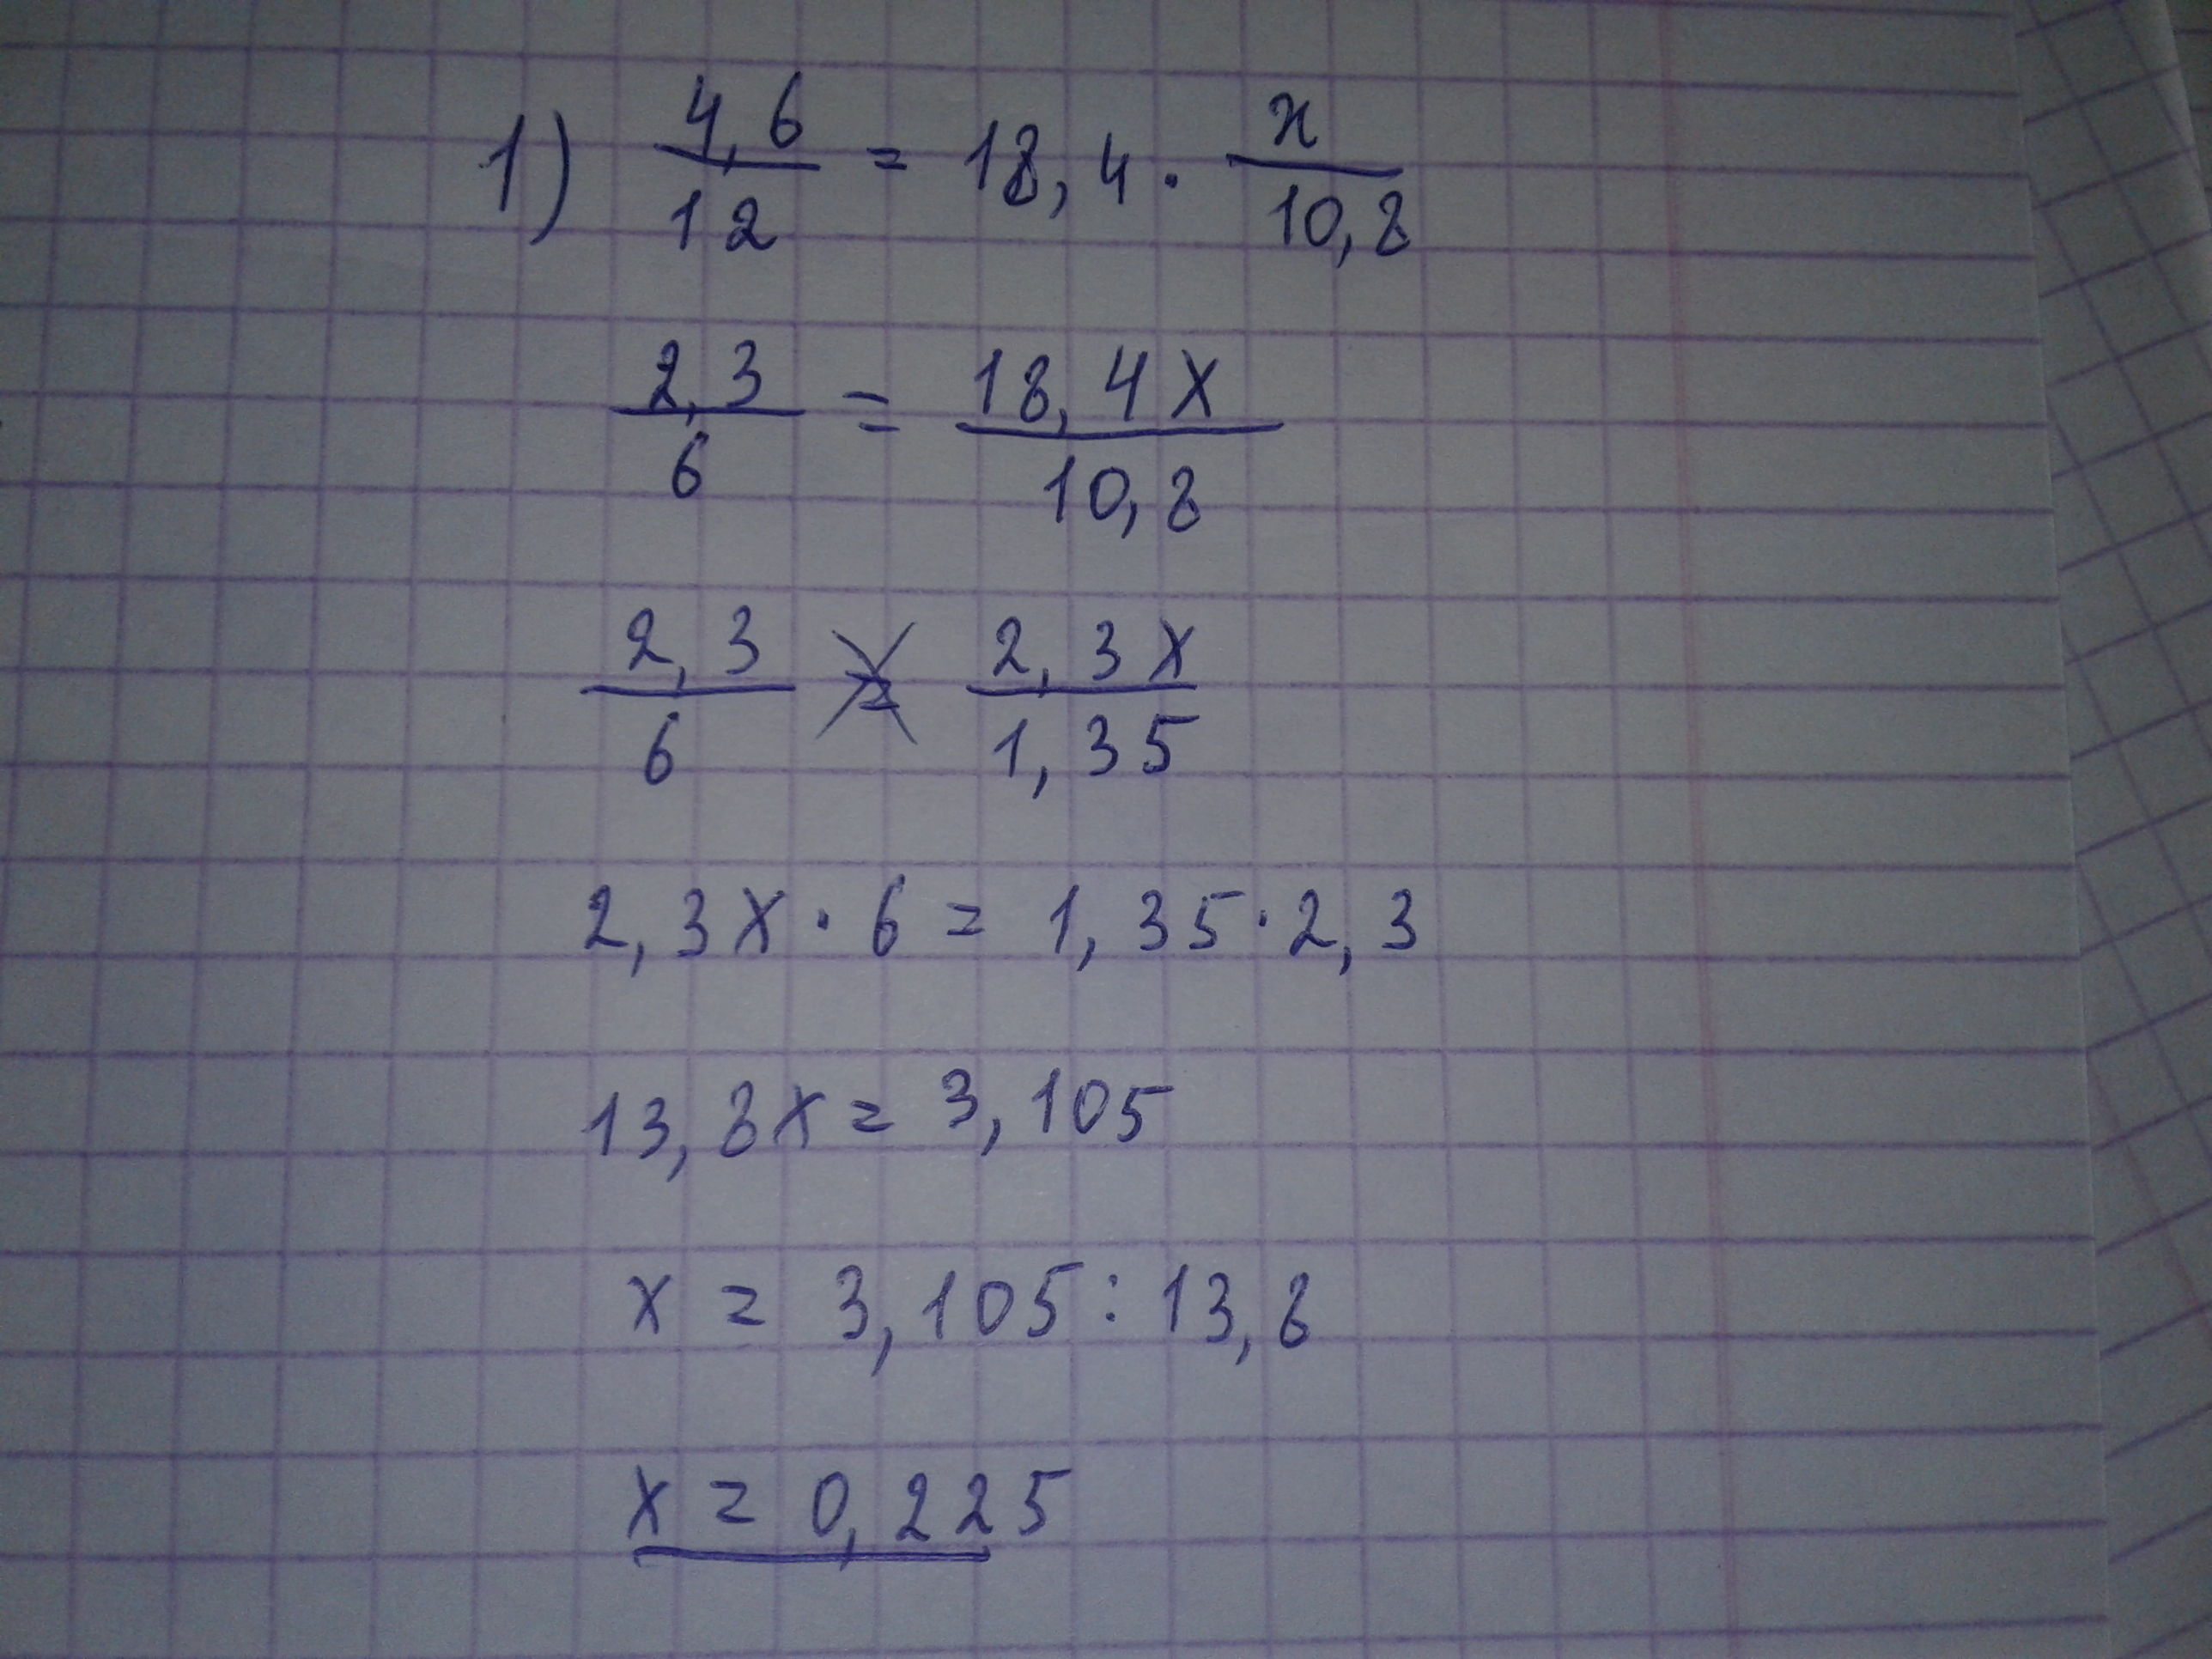 1) 4,6/12 = 18,4 · x/10,8
2,3/6 = 18,4x/10,8
2,3/6 = 2,3x/1,35
2,3x · 6 = 1,35 · 2,3
13,8x = 3,105
x = 3,105 : 13,8
x = 0,225